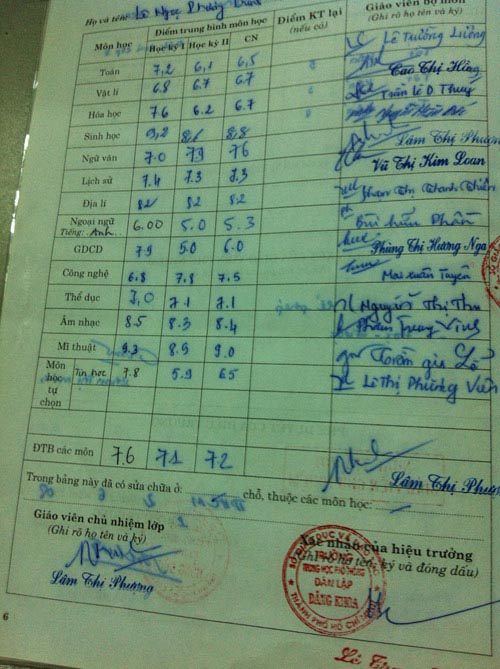 Họ và tên: Lê Ngọc Phương
Môn học Điểm trung bình môn học Điểm KT lại (nếu có) Giáo viên bộ môn (Ghi rõ họ tên và ký)
Học kỳ I Học kỳ II CN
Toán 7,2 6,1 6,5 Lê Trường Lương
Vật lí 6.8 6.7 6.7 Cao Thị Hồng
Hóa học 7.6 6.2 6.7 Trần Lê D Thuy
Sinh học 9,2 8.6 8,8 Lâm Thị Phương
Ngữ văn 7.0 7.9 7.6 Vũ Thị Kim Loan
Lịch sử 7.4 7.3 7.3 Phan Thị Thanh
Địa lí 8.2 8.2 8.2 Bùi Hữu Phần
Ngoại ngữ Tiếng: Anh 6.00 5.0 5.3 Phùng Thị Hương Nga
GDCD 7.9 5.0 6.0 Mai Xuân Tuyên
Công nghệ 6.8 7.8 7.5
Thể dục 7.0 7.1 7.1 Nguyễn Thị Thu
Âm nhạc 8.5 8.3 8.4 Phạm Trung Vinh
Mĩ thuật 9.3 8.9 9.0 Trần gia Lê
Môn học tự chọn Tin học 7.8 5.9 6.5 Lê Thị Phương Viên
ĐTB các môn 7.6 7.1 7.2
Lâm Thị Phương
Trong bảng này đã có sửa chữa ở: chỗ, thuộc các môn học:
Giáo viên chủ nhiệm lớp
(Ghi rõ họ tên và ký)
Xác nhận của hiệu trưởng
(Ghi rõ họ tên, ký và đóng dấu)
TRƯỜNG
TRUNG HỌC PHỔ THÔNG
DÂN LẬP
ĐĂNG KHOA
THÀNH PHỐ HỒ CHÍ MINH
Lâm Thị Phương
6